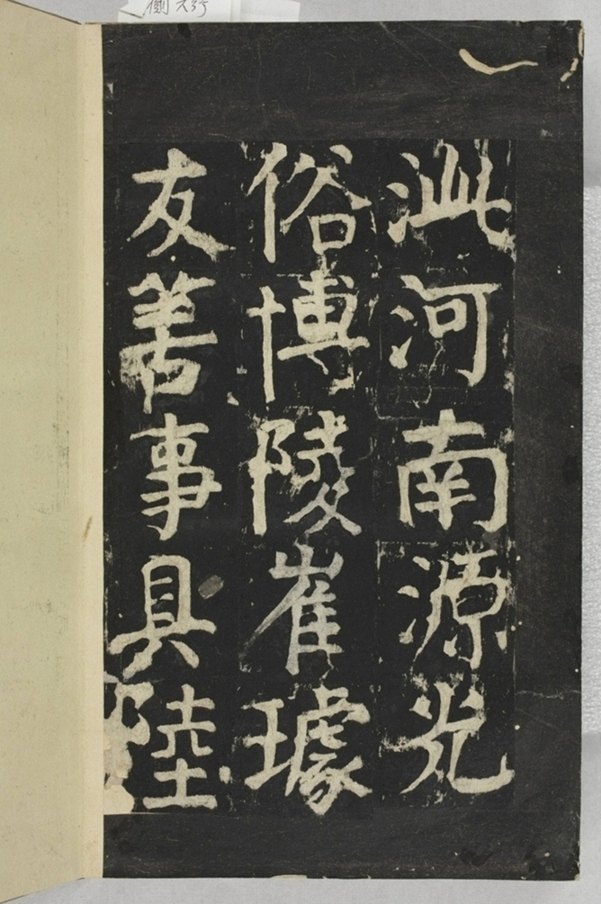 泚河南源光
俗博陵崔璩
友善事具陸